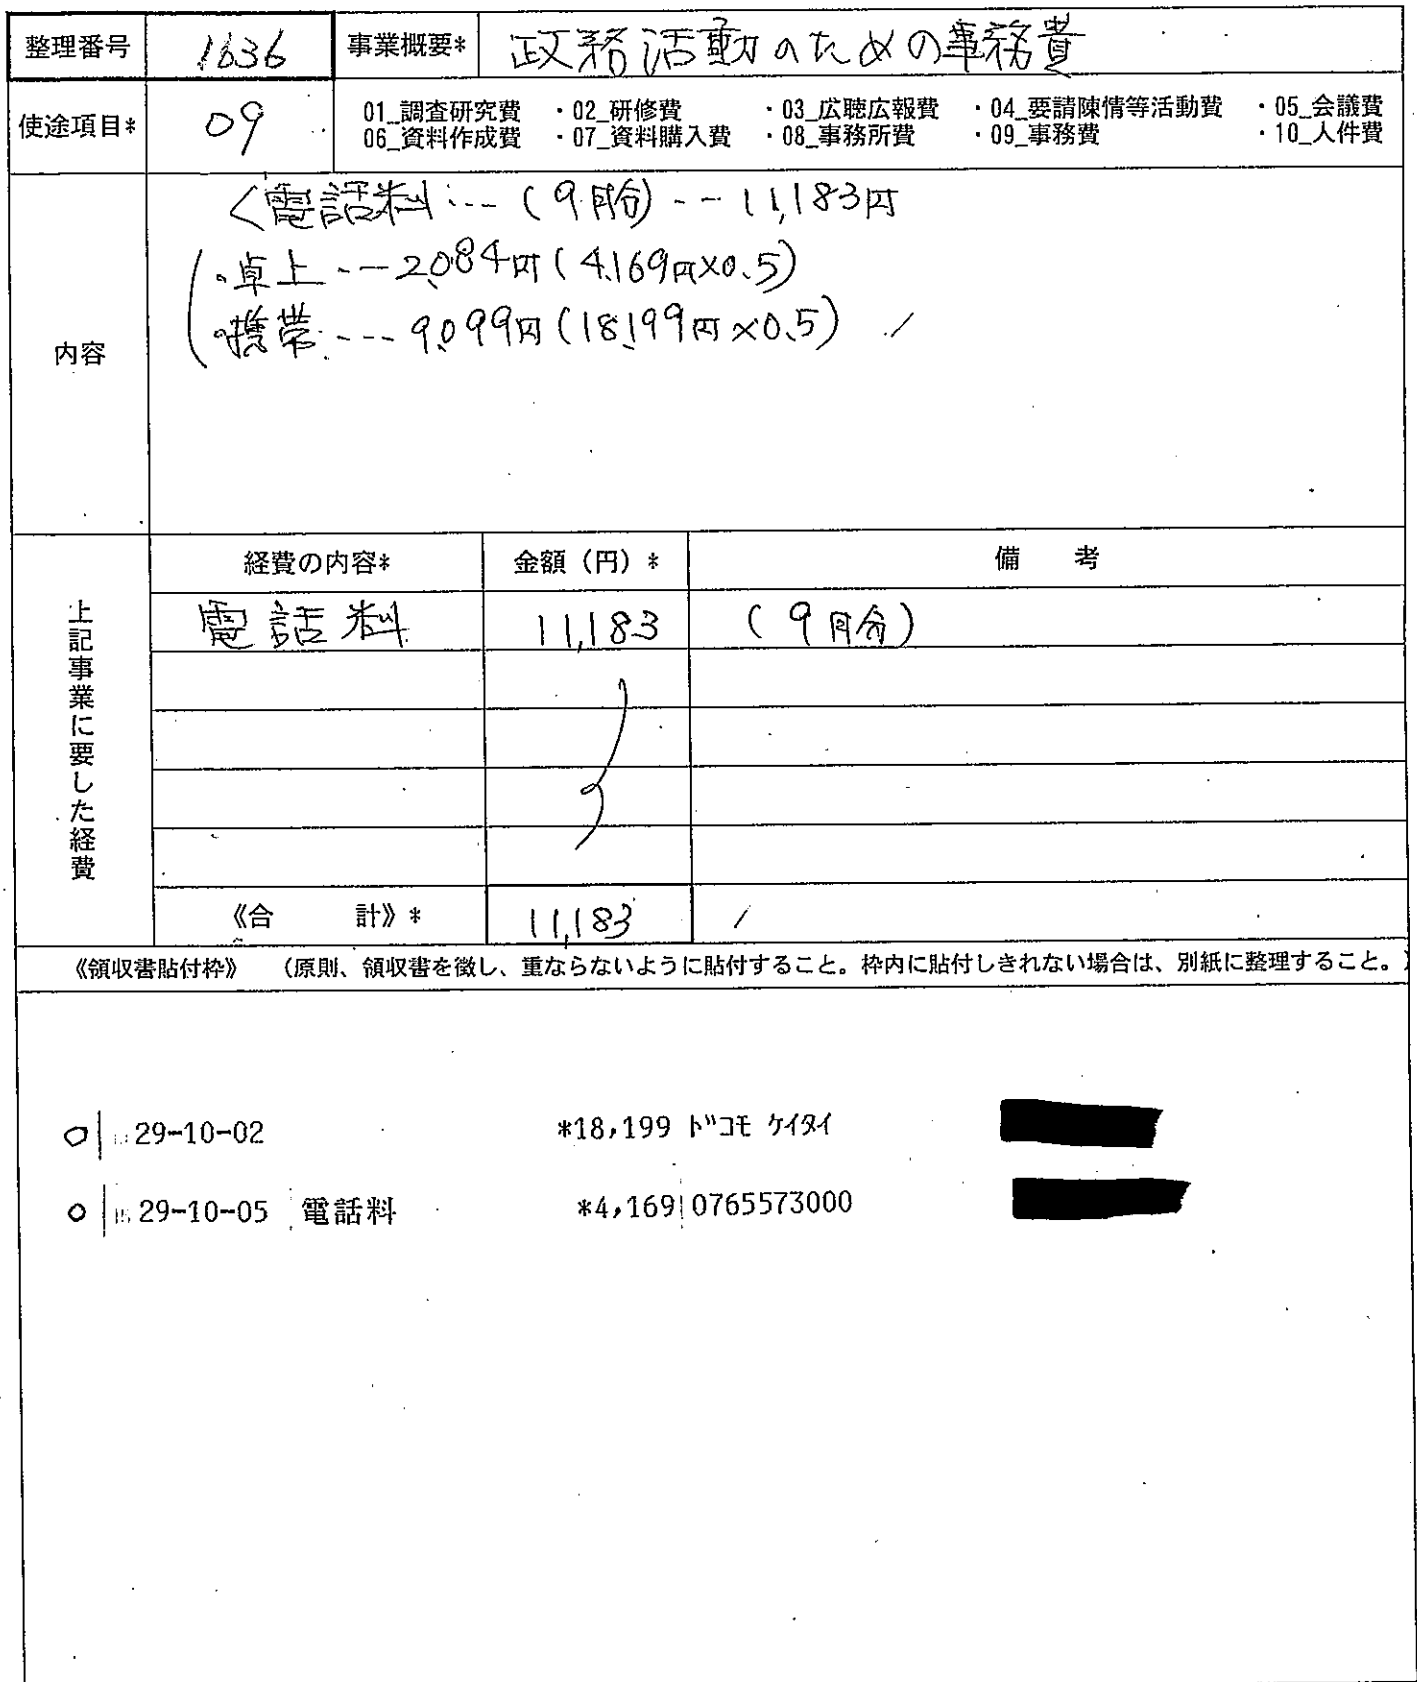 整理番号 1636 事業概要* 政務活動のための事務費
使途項目* 09 01_調査研究費 ・02_研修費 ・03_広聴広報費 ・04_要請陳情等活動費 ・05_会議費
06_資料作成費 ・07_資料購入費 ・08_事務所費 ・09_事務費 ・10_人件費
内容
<電話料…--(9月分)--11,183円
・卓上---2,084円(4,169円×0.5)
・携帯---9,099円(18,199円×0.5)
上記事業に要した経費
経費の内容* 金額(円)* 備 考
電話料 11,183 (9月分)
《合 計》* 11,183
《領収書貼付枠》 (原則、領収書を徴し、重ならないように貼付すること。枠内に貼付しきれない場合は、別紙に整理すること。)
29-10-02 *18,199 ドコモ ケイタイ
29-10-05 電話料 *4,169 0765573000